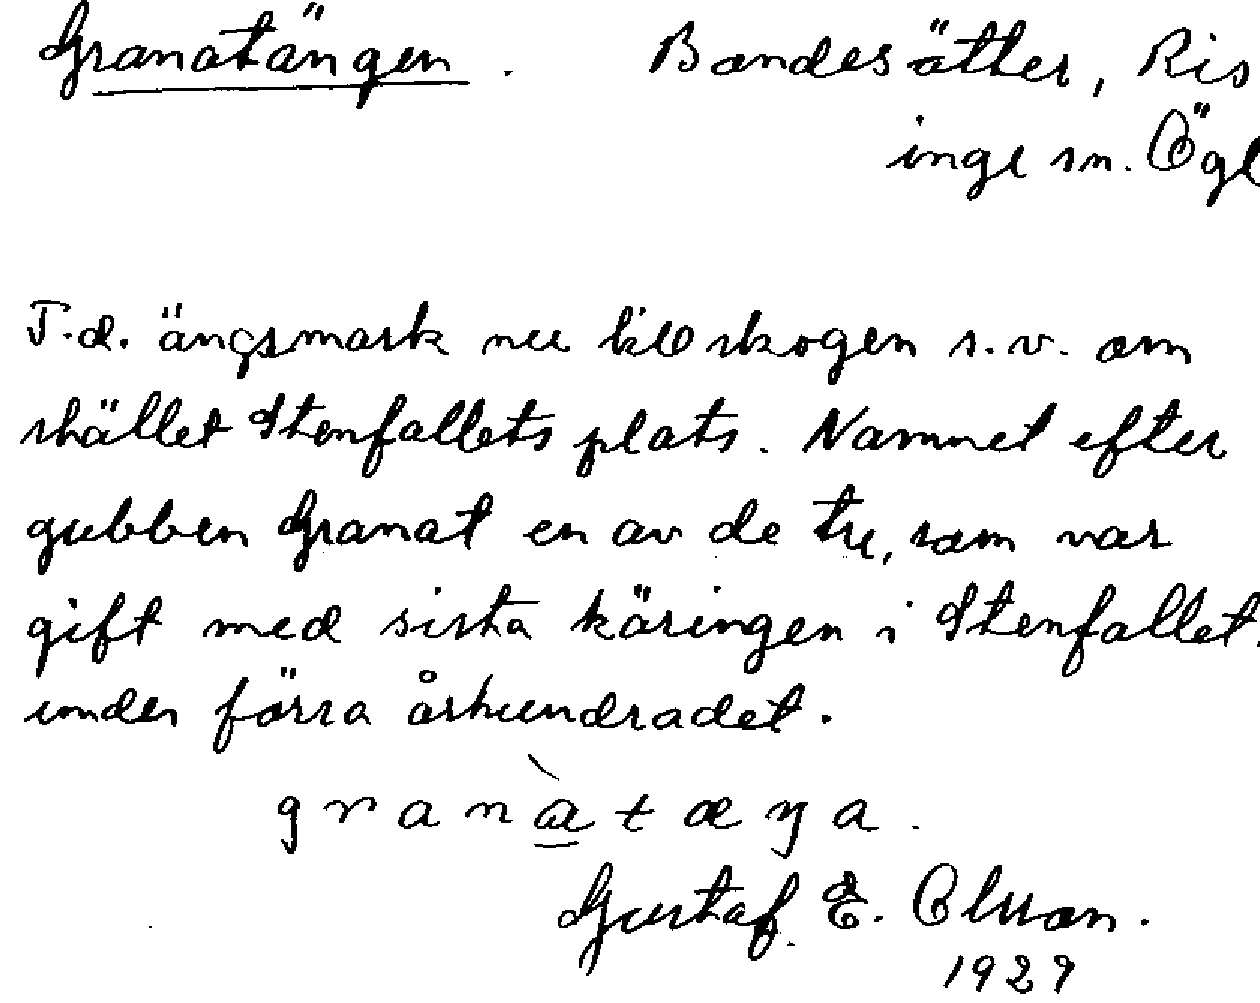 Granatängen. Bandesätter, Ris
inge sn. Ögl
F.d. ängsmark nu skogen s.v. om
stället Stenfallets plats. Namnet efter
gubben Granat en av de tre, som var
gift med sista käringen i Stenfallet.
under förra århundradet.
granàtæŋa.
Gustaf E. Olsson.
1929